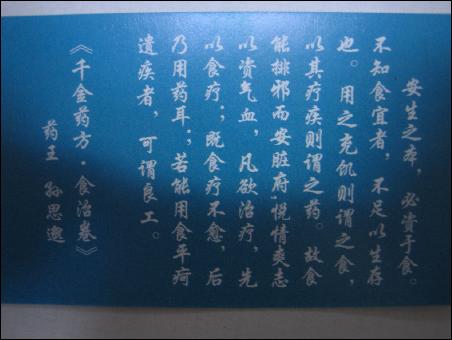 安生之本，必资于食。
不知食宜者，不足以生存
也。用之充饥则谓之食，
以其疗疾则谓之药。故食
能排邪而安脏府，悦情爽志
以资气血，凡欲治疗，先
以食疗；既食疗不愈，后
乃用药耳；若能用食平疴
遗疾者，可谓良工。
《千金药方·食治卷》
药王 孙思邈